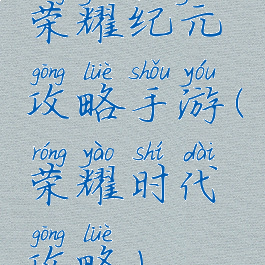 荣耀纪元
gōng lüè shǒu yóu
攻略手游(
róng yào shí dài
荣耀时代
gōng lüè
攻略)